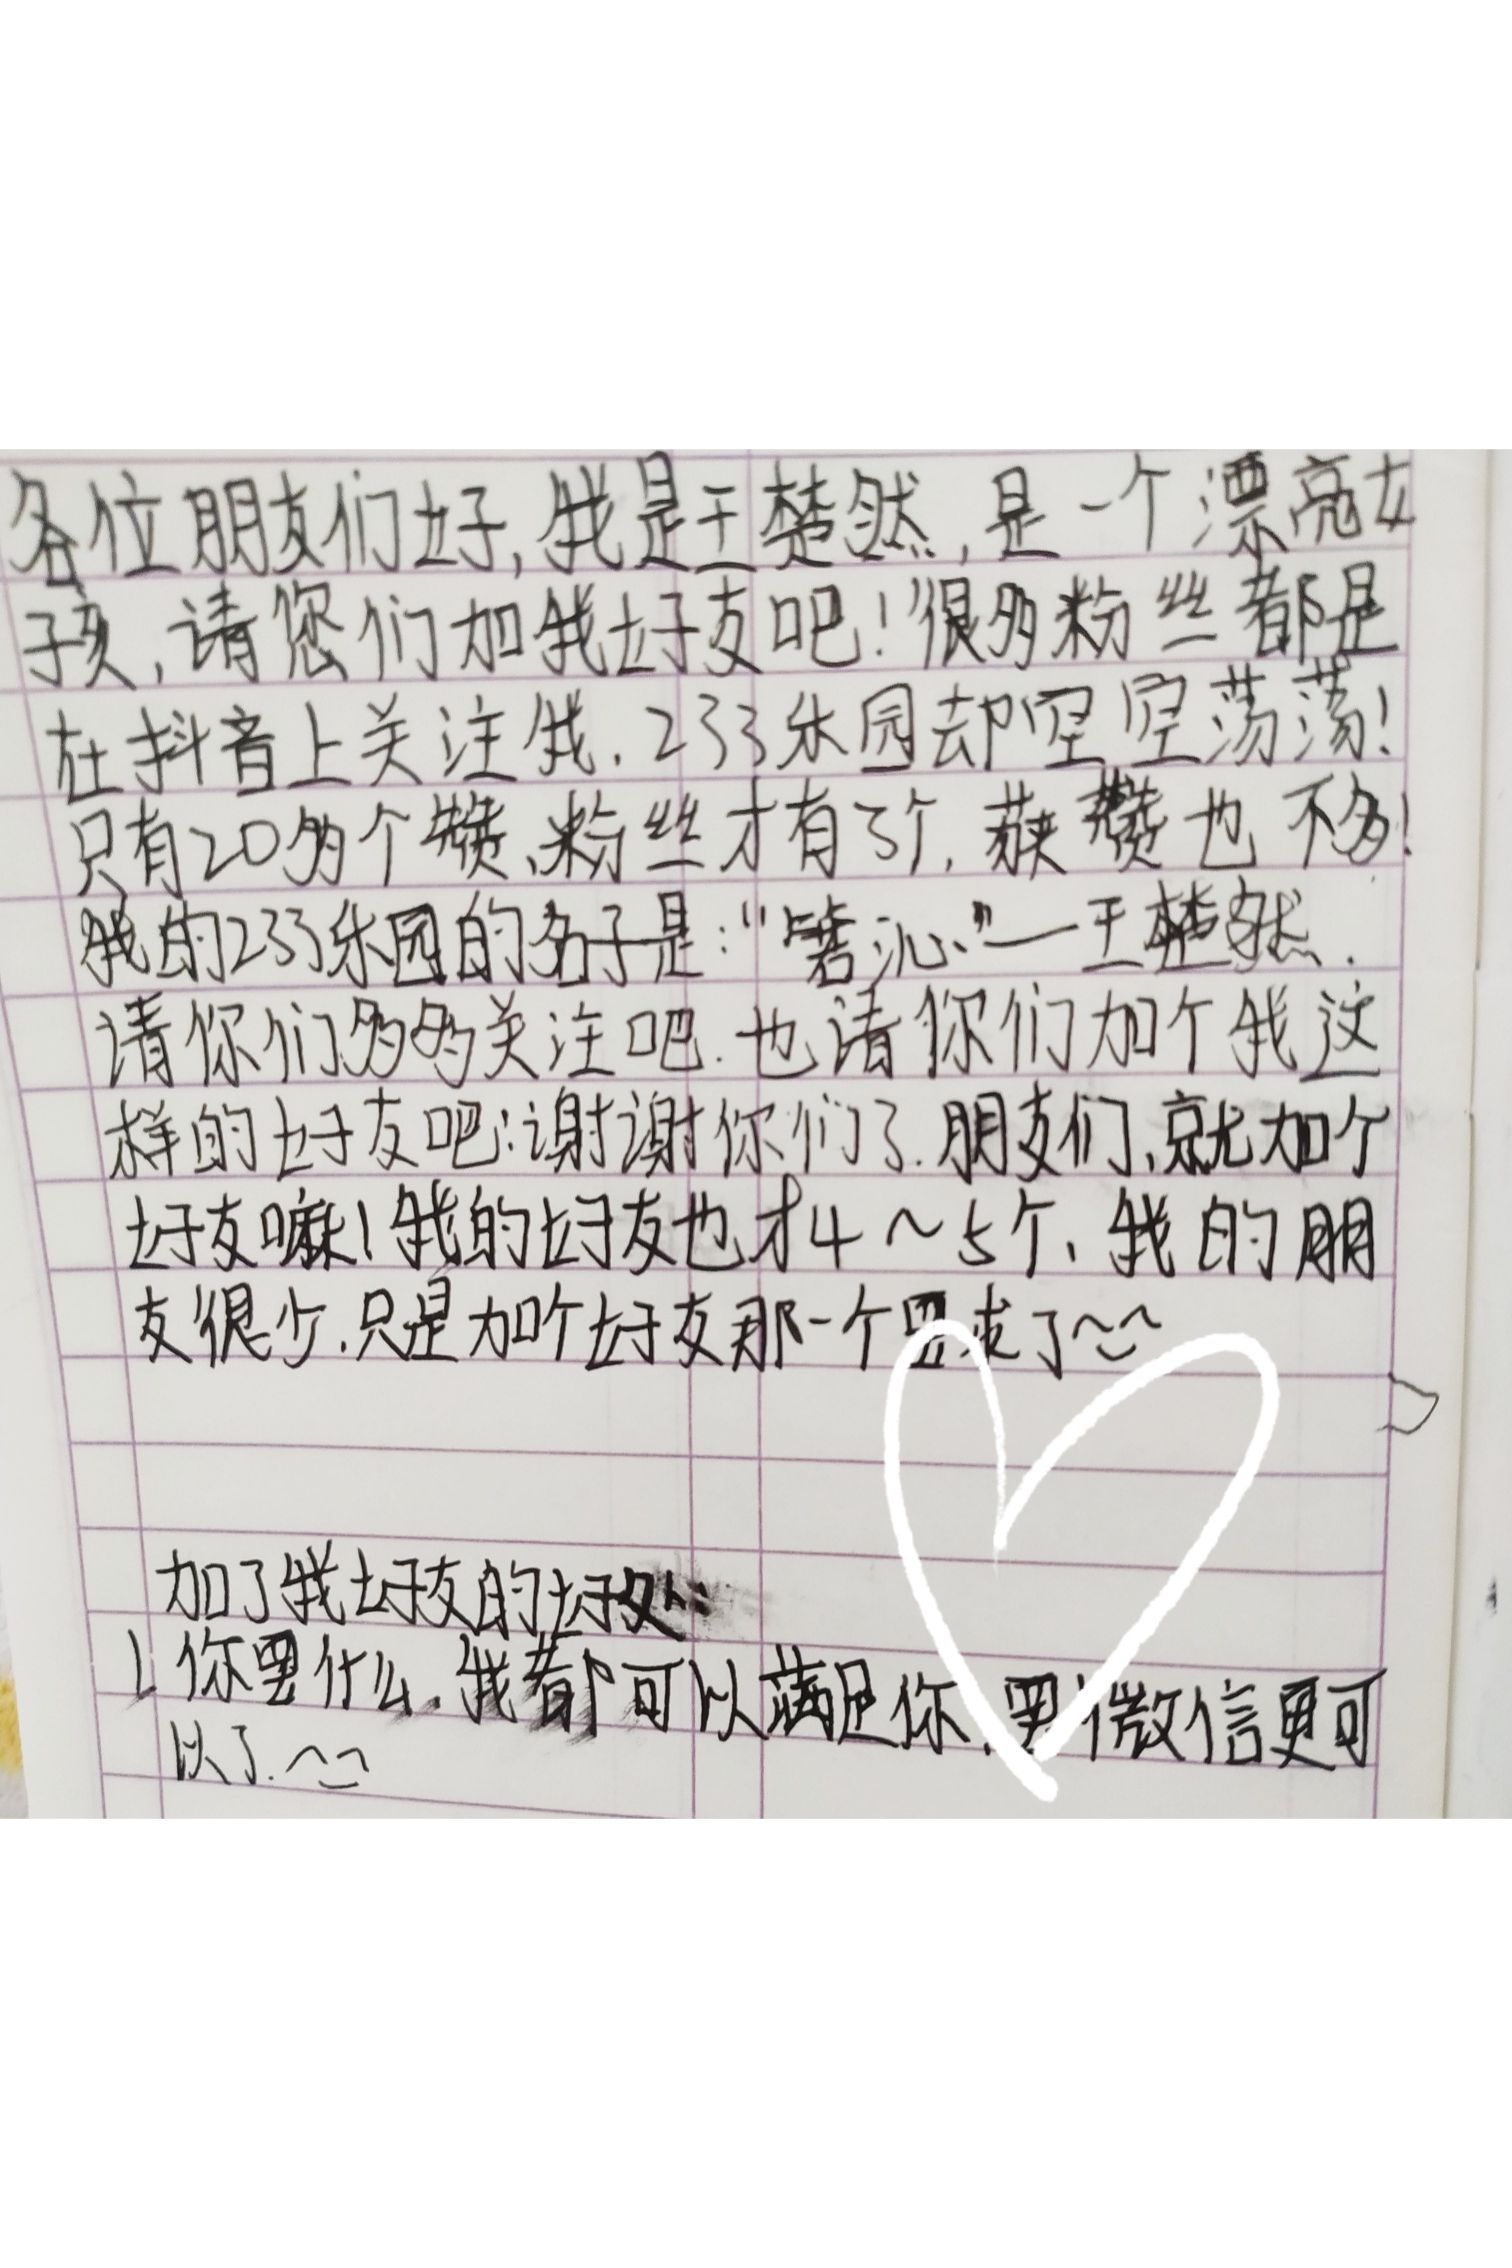 各位朋友们好,我是王楚然,是一个漂亮女
孩,请您们加我好友吧!很多粉丝都是
在抖音上关注我.233乐园却空空荡荡!
只有20多个赞、粉丝才有3个,获赞也不多!
我的233乐园的名子是:"箬沁"—王楚然.
请你们多多关注吧.也请你们加个我这
样的好友吧:谢谢你们了.朋友们、就加个
好友嘛!我的好友也才4～5个、我的朋
友很少.只是加个好友那一个要求了~~
加了我好友的好处:
1 你要什么.我都可以满足你.要微信更可
以了.